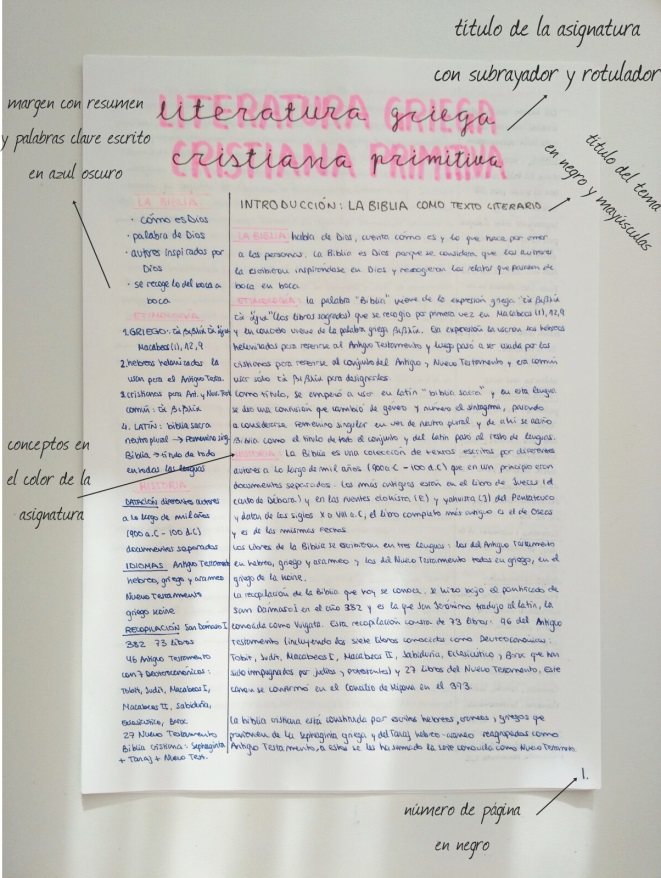 título de la asignatura
con subrayador y rotulador
margen con resumen
y palabras clave escrito
en azul oscuro
título del tema
en negro y mayúsculas
conceptos en
el color de la
asignatura
número de página
en negro
LITERATURA griega
CRISTIANA primitiva
LA BIBLIA
· cómo es Dios
· palabra de Dios
· autores inspirados por
Dios
· se recoge lo del boca a
boca
ETIMOLOGÍA
1. GRIEGO: τὰ βιβλία τὰ ἅγια
Macabeos (1), 12,9
2. hebreos helenizados la
usan para el Antiguo Testa.
3. cristianos para Ant. y Nuev. Test
común: τὰ βιβλία
4. LATÍN: biblia sacra
neutro plural → femenino sing.
Biblia → título de todo
en todas las lenguas
HISTORIA
DATACIÓN diferentes autores
a lo largo de mil años
(900 a.C - 100 d.C)
documentos separados
IDIOMAS Antiguo Testamento
hebreo, griego y arameo
Nuevo Testamento
griego koine
RECOPILACIÓN San Dámaso I
382 73 libros
46 Antiguo Testamento
con 7 Deuterocanónicos:
Tobit, Judit, Macabeos I,
Macabeos II, Sabiduría,
Eclesiástico, Baruc
27 Nuevo Testamento
Biblia Cristiana: Septuaginta
+ Tanaj + Nuevo Test.
INTRODUCCIÓN: LA BIBLIA COMO TEXTO LITERARIO
LA BIBLIA habla de Dios, cuenta cómo es y lo que hace por amor
a las personas. La Biblia es Dios porque se considera que los autores
la escribieron inspirándose en Dios y recogieron los relatos que pasaron de
boca en boca
ETIMOLOGÍA: la palabra "Biblia" viene de la expresión griega "τὰ βιβλία
τὰ ἅγια" (los libros sagrados) que se recogió por primera vez en Macabeos (1), 12,9
y en concreto viene de la palabra griega βιβλία. La expresión la usaron los hebreos
helenizados para referirse al Antiguo Testamento y luego pasó a ser usada por los
cristianos para referirse al conjunto del Antiguo y Nuevo Testamento y era común
usar solo τὰ βιβλία para designarlos
Como título, se empezó a usar en latín "biblia sacra" y en esta lengua
se dio una confusión que cambió de género y número el sintagma, pasando
a considerarse femenino singular en vez de neutro plural y de ahí se acuñó
Biblia como el título de todo el conjunto y del latín pasó al resto de lenguas.
HISTORIA: La Biblia es una colección de textos escritos por diferentes
autores a lo largo de mil años (900 a.C - 100 d.C) que en un principio eran
documentos separados. Los más antiguos están en el libro de Jueces (el
canto de Débora) y en las fuentes elohísta (E) y yahvista (J) del Pentateuco
y datan de los siglos X a VIII a.C, el libro completo más antiguo es el de Oseas
y es de las mismas fechas
Los libros de la Biblia se escribieron en tres lenguas: los del Antiguo Testamento
en hebreo, griego y arameo y los del Nuevo Testamento todos en griego, en el
griego de la Koine.
La recopilación de la Biblia que hoy se conoce, se hizo bajo el pontificado de
San Dámaso I en el año 382 y es la que San Jerónimo tradujo al latín, la
conocida como Vulgata. Esta recopilación consta de 73 libros: 46 del Antiguo
Testamento (incluyendo los siete libros conocidos como Deuterocanónicos:
Tobit, Judit, Macabeos I, Macabeos II, Sabiduría, Eclesiástico y Baruc que han
sido impugnados por judíos y protestantes) y 27 libros del Nuevo Testamento. Este
canon se confirmó en el Concilio de Hipona en el 393.
La biblia cristiana está constituida por escritos hebreos, arameos y griegos que
provienen de la Septuaginta griega y del Tanaj hebreo-arameo reagrupados como
Antiguo Testamento, a estos se les ha sumado la serie conocida como Nuevo Testamento.
1.